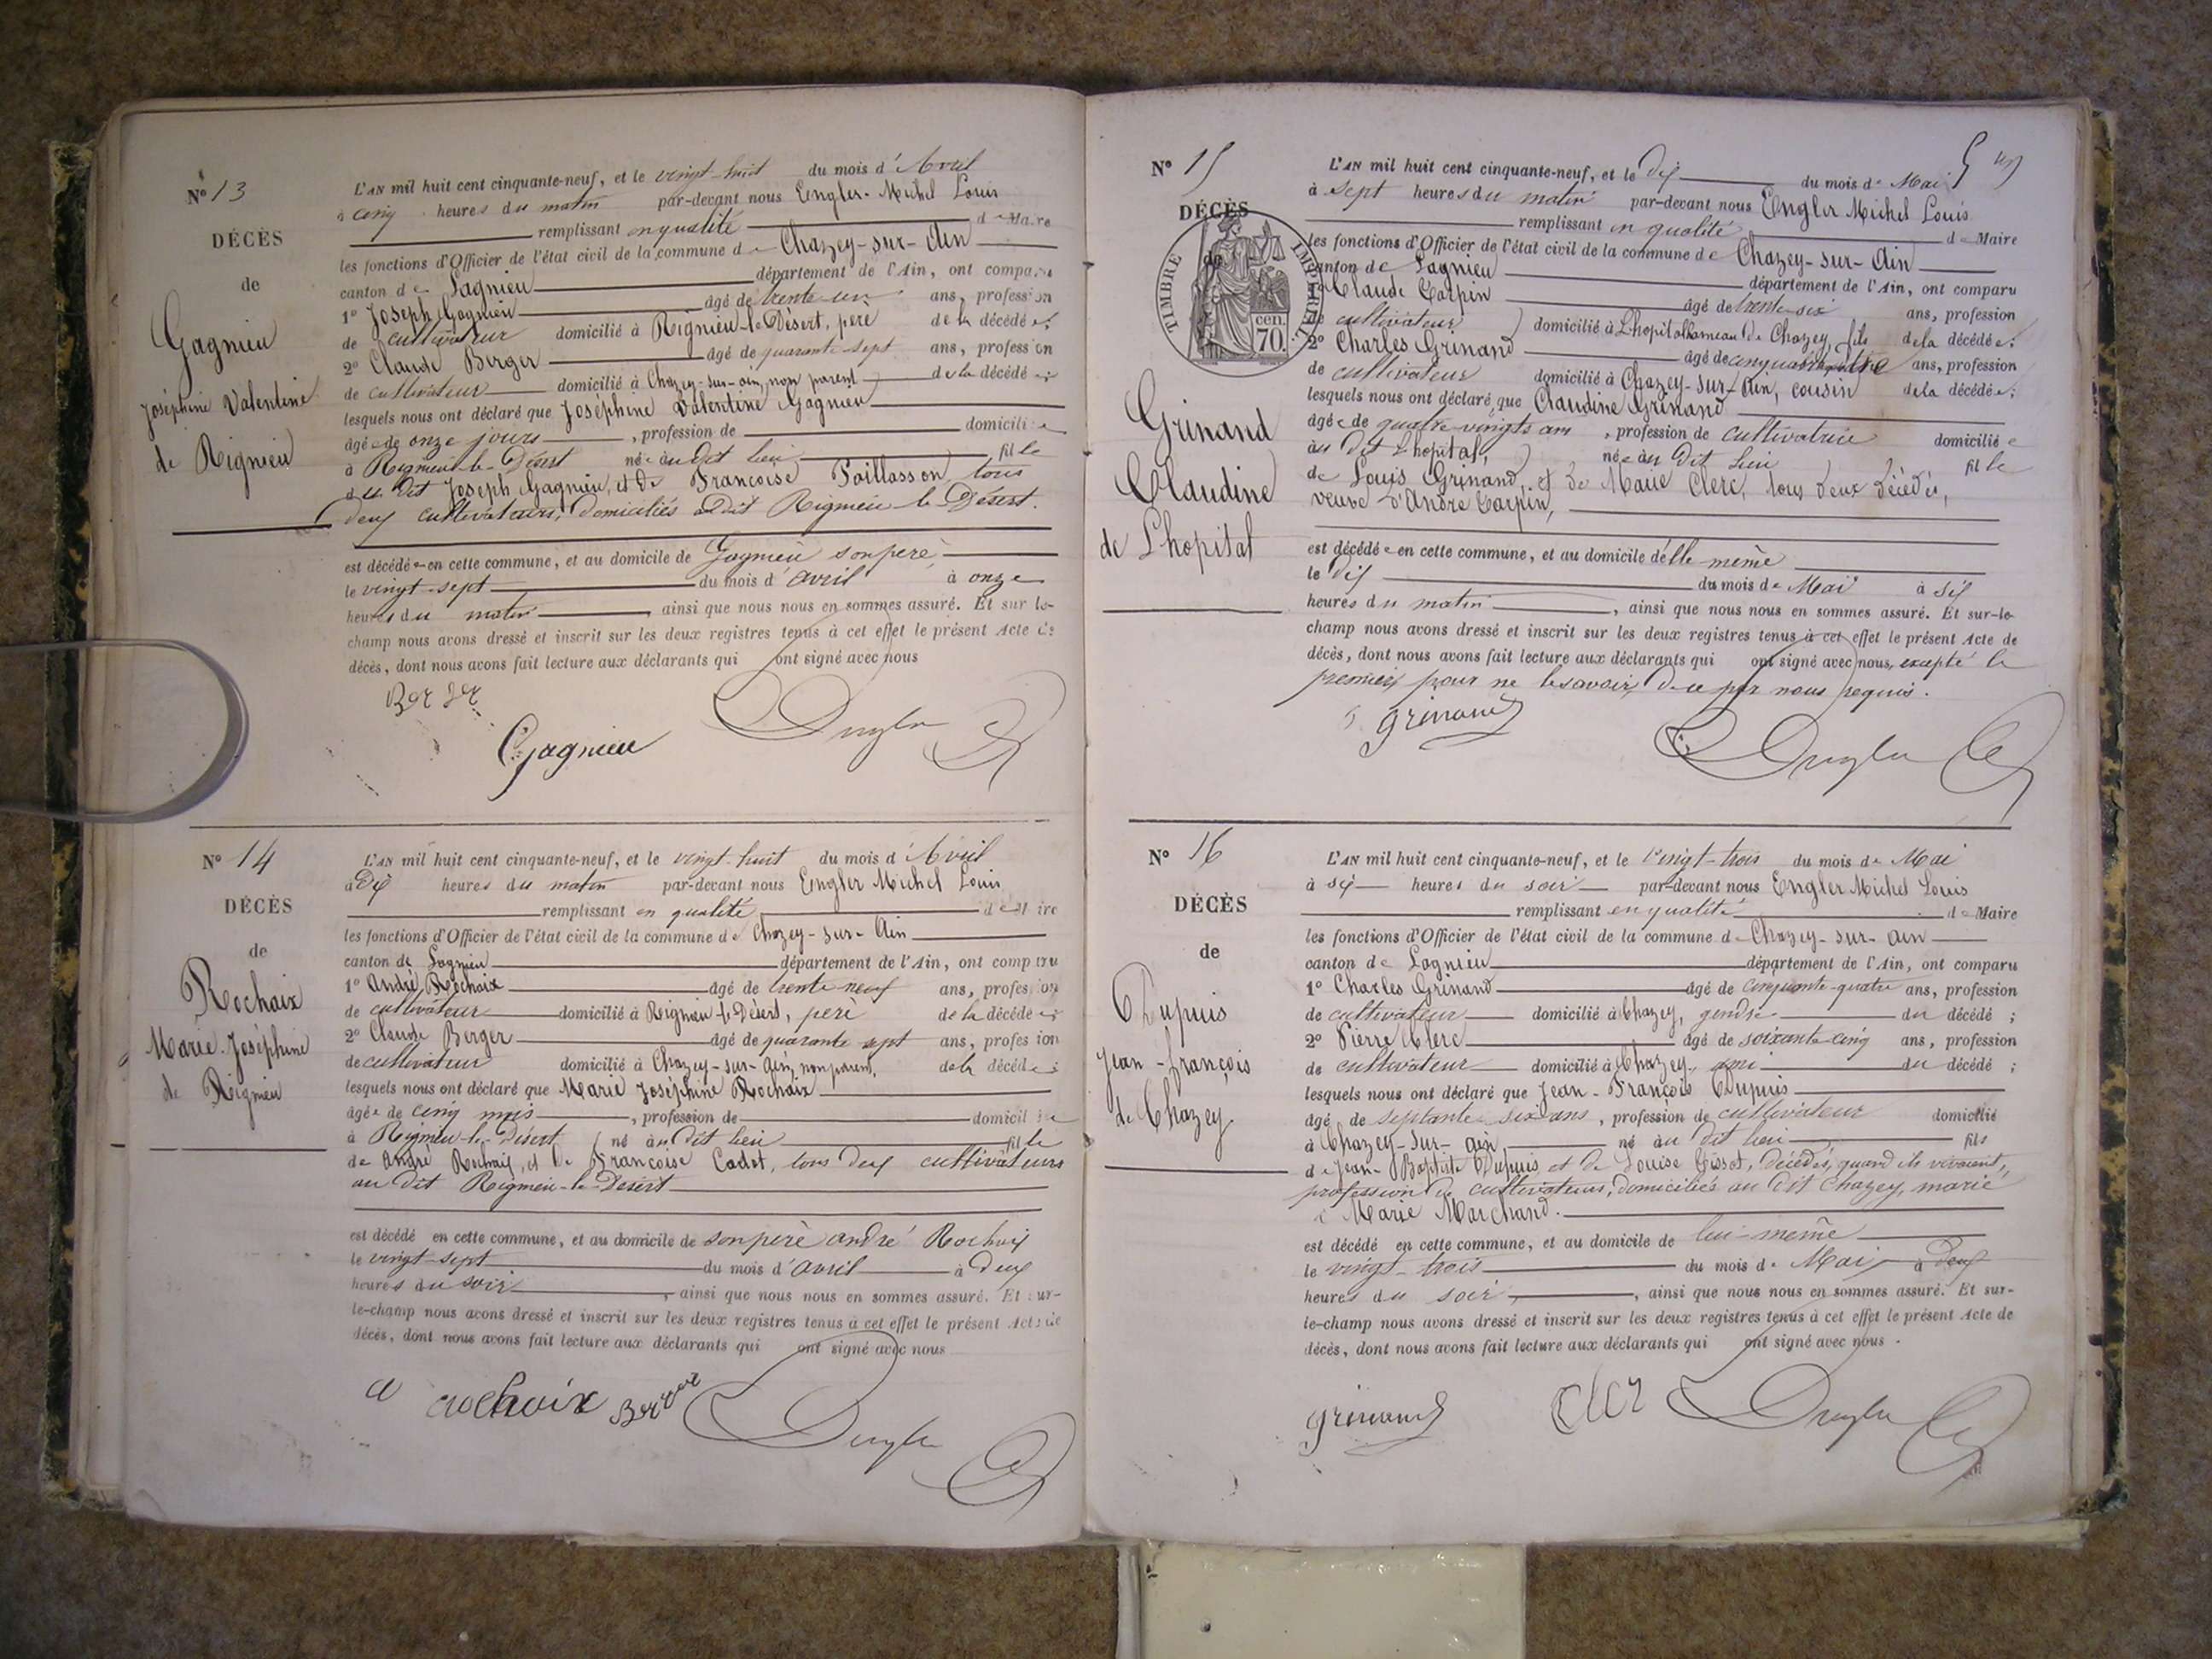 N° 13
DÉCÈS
de
Gagnieu
Joséphine Valentine
de Rignieu
L'AN mil huit cent cinquante-neuf, et le vingt-huit du mois d'Avril
à cinq heures du matin par-devant nous Engler Michel Louis
remplissant en qualité de Maire
les fonctions d'Officier de l'état civil de la commune de Chazey-sur-Ain
canton de Lagnieu département de l'Ain, ont comparu
1° Joseph Gagnieu âgé de trente-un ans, profession
de cultivateur domicilié à Rignieu-le-Désert, père de la décédée;
2° Claude Berger âgé de quarante-sept ans, profession
de cultivateur domicilié à Chazey-sur-ain, non parent de la décédée
lesquels nous ont déclaré que Joséphine Valentine Gagnieu
âgée de onze jours, profession de domiciliée
à Rignieu-le-Désert née au dit lieu fille
du dit Joseph Gagnieu, et de Francoise Paillasson, tous
deux cultivateurs, domiciliés au dit Rignieu-le-Désert.
est décédée en cette commune, et au domicile de Gagnieu son père,
le vingt-sept du mois d'avril à onze
heures du matin, ainsi que nous nous en sommes assuré. Et sur le-
champ nous avons dressé et inscrit sur les deux registres tenus à cet effet le présent Acte de
décès, dont nous avons fait lecture aux déclarants qui ont signé avec nous
Gagnieu
Engler
N° 14
DÉCÈS
de
Rochaix
Marie Joséphine
de Rignieu
L'AN mil huit cent cinquante-neuf, et le vingt-huit du mois d'Avril
à Dix heures du matin par-devant nous Engler Michel Louis
remplissant en qualité de Maire
les fonctions d'Officier de l'état civil de la commune de Chazey-sur-Ain
canton de Lagnieu département de l'Ain, ont comparu
1° André Rochaix âgé de trente neuf ans, profession
de cultivateur domicilié à Rignieu-le-Désert, père de la décédée
2° Claude Berger âgé de quarante sept ans, profession
de cultivateur domicilié à Chazey-sur-Ain, non parent, de la décédée;
lesquels nous ont déclaré que Marie Joséphine Rochaix
âgée de cinq mois, profession de domiciliée
à Rignieu-le-Désert né au dit lieu fille
de André Rochaix, et de Francoise Cadot, tous deux cultivateurs
au dit Rignieu-le-Désert
est décédé en cette commune, et au domicile de son père andré Rochaix
le vingt-sept du mois d'avril à deux
heures du soir, ainsi que nous nous en sommes assuré. Et sur-
le-champ nous avons dressé et inscrit sur les deux registres tenus à cet effet le présent Acte de
décès, dont nous avons fait lecture aux déclarants qui ont signé avec nous
a rochaix Berger Engler
N° 15
DÉCÈS
de
TIMBRE IMPÉRIAL
cen. 70.
Grinand
Claudine
de Lhopital
L'AN mil huit cent cinquante-neuf, et le dix du mois de Mai
à sept heures du matin par-devant nous Engler Michel Louis
remplissant en qualité de Maire
les fonctions d'Officier de l'état civil de la commune de Chazey-sur-Ain
canton de Lagnieu département de l'Ain, ont comparu
1° Claude Carpin âgé de trente-six ans, profession
de cultivateur domicilié à Lhopital hameau de Chazey, fils de la décédée;
2° Charles Grinand âgé de cinquante quatre ans, profession
de cultivateur domicilié à Chazey-sur-Ain, cousin de la décédée;
lesquels nous ont déclaré que Claudine Grinand
âgée de quatre-vingts ans, profession de cultivatrice domiciliée
au dit Lhopital, née au dit lieu fille
de Louis Grinand, et de Marie Clerc, tous deux décédés,
veuve d'André Carpin,
est décédée en cette commune, et au domicile d'elle même
le dix du mois de Mai à six
heures du matin, ainsi que nous nous en sommes assuré. Et sur-le-
champ nous avons dressé et inscrit sur les deux registres tenus à cet effet le présent Acte de
décès, dont nous avons fait lecture aux déclarants qui ont signé avec nous, excepté le
premier pour ne le savoir, de ce par nous requis.
grinand Engler
N° 16
DÉCÈS
de
Dupuis
Jean-françois
de Chazey
L'AN mil huit cent cinquante-neuf, et le vingt-trois du mois de Mai
à six heures du soir par-devant nous Engler Michel Louis
remplissant en qualité de Maire
les fonctions d'Officier de l'état civil de la commune de Chazey-sur-ain
canton de Lagnieu département de l'Ain, ont comparu
1° Charles Grinand âgé de cinquante-quatre ans, profession
de cultivateur domicilié à Chazey, gendre du décédé;
2° Pierre Clerc âgé de soixante-cinq ans, profession
de cultivateur domicilié à Chazey, ami du décédé;
lesquels nous ont déclaré que Jean-François Dupuis
âgé de septante-six ans, profession de cultivateur domicilié
à Chazey-sur-ain né au dit lieu fils
de Jean-Baptiste Dupuis et de Louise Gissot, décédés, quand ils vivaient,
profession de cultivateurs, domiciliés au dit Chazey, marié
à Marie Marchand.
est décédé en cette commune, et au domicile de lui-même
le vingt-trois du mois de Mai à deux
heures du soir, ainsi que nous nous en sommes assuré. Et sur-
le-champ nous avons dressé et inscrit sur les deux registres tenus à cet effet le présent Acte de
décès, dont nous avons fait lecture aux déclarants qui ont signé avec nous.
grinand Engler